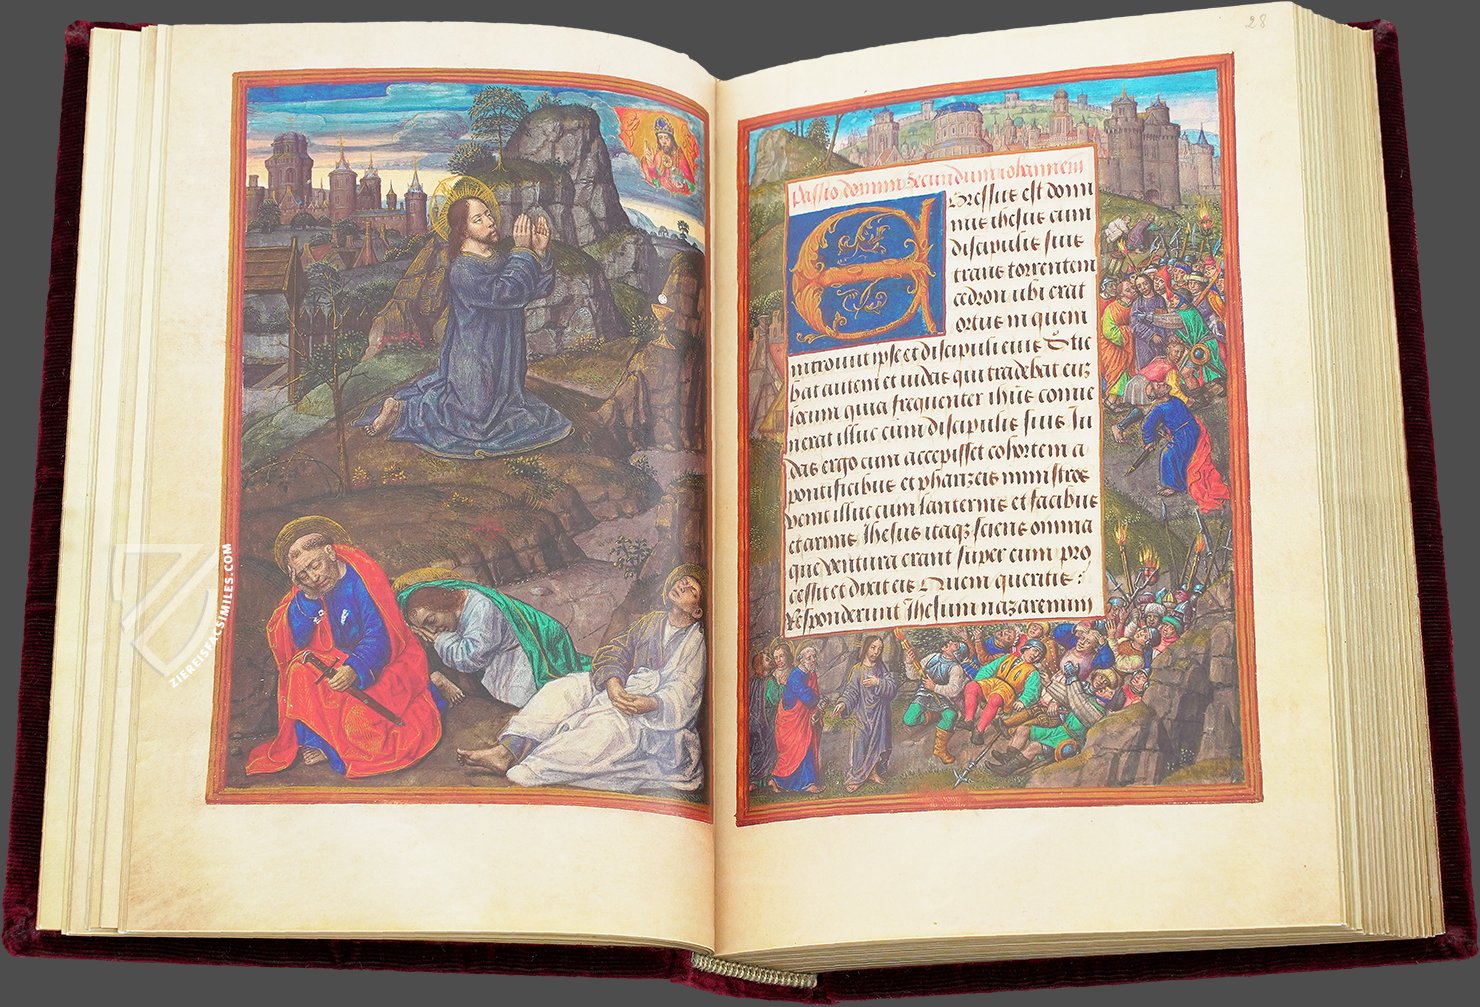 28
Passio domini secundum iohannem
Egressus est domi
nus ihesus cum
discipulis suis
trans torrentem
cedron ubi erat
ortus in quem
introivit ipse et discipuli eius Scie
bat autem et iudas qui tradebat eum
locum quia frequenter ihus conue
nerat illuc cum discipulis suis Iu
das ergo cum accepisset cohortem a
pontificibus et phariseis ministros
venit illuc cum lanternis et facibus
et armis Ihesus itaq sciens omnia
que ventura erant super eum pro
cessit et dixit eis Quem queritis :
Responderunt Ihesum nazarenum
ZIEREISFACSIMILES.COM